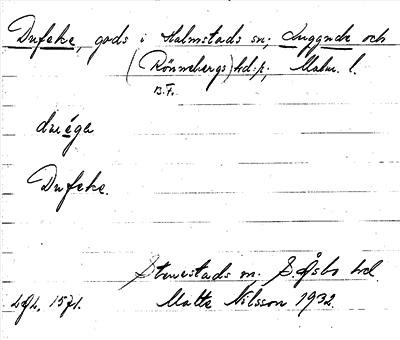 Dufeke, gods i Halmstads sn; Luggude och
(Rönnebergs) hd:p; Malm. l.
B.F.
duéga
Dufeke.
Stenestads sn. S. Åsbo hd.
Malte Nilsson 1932.